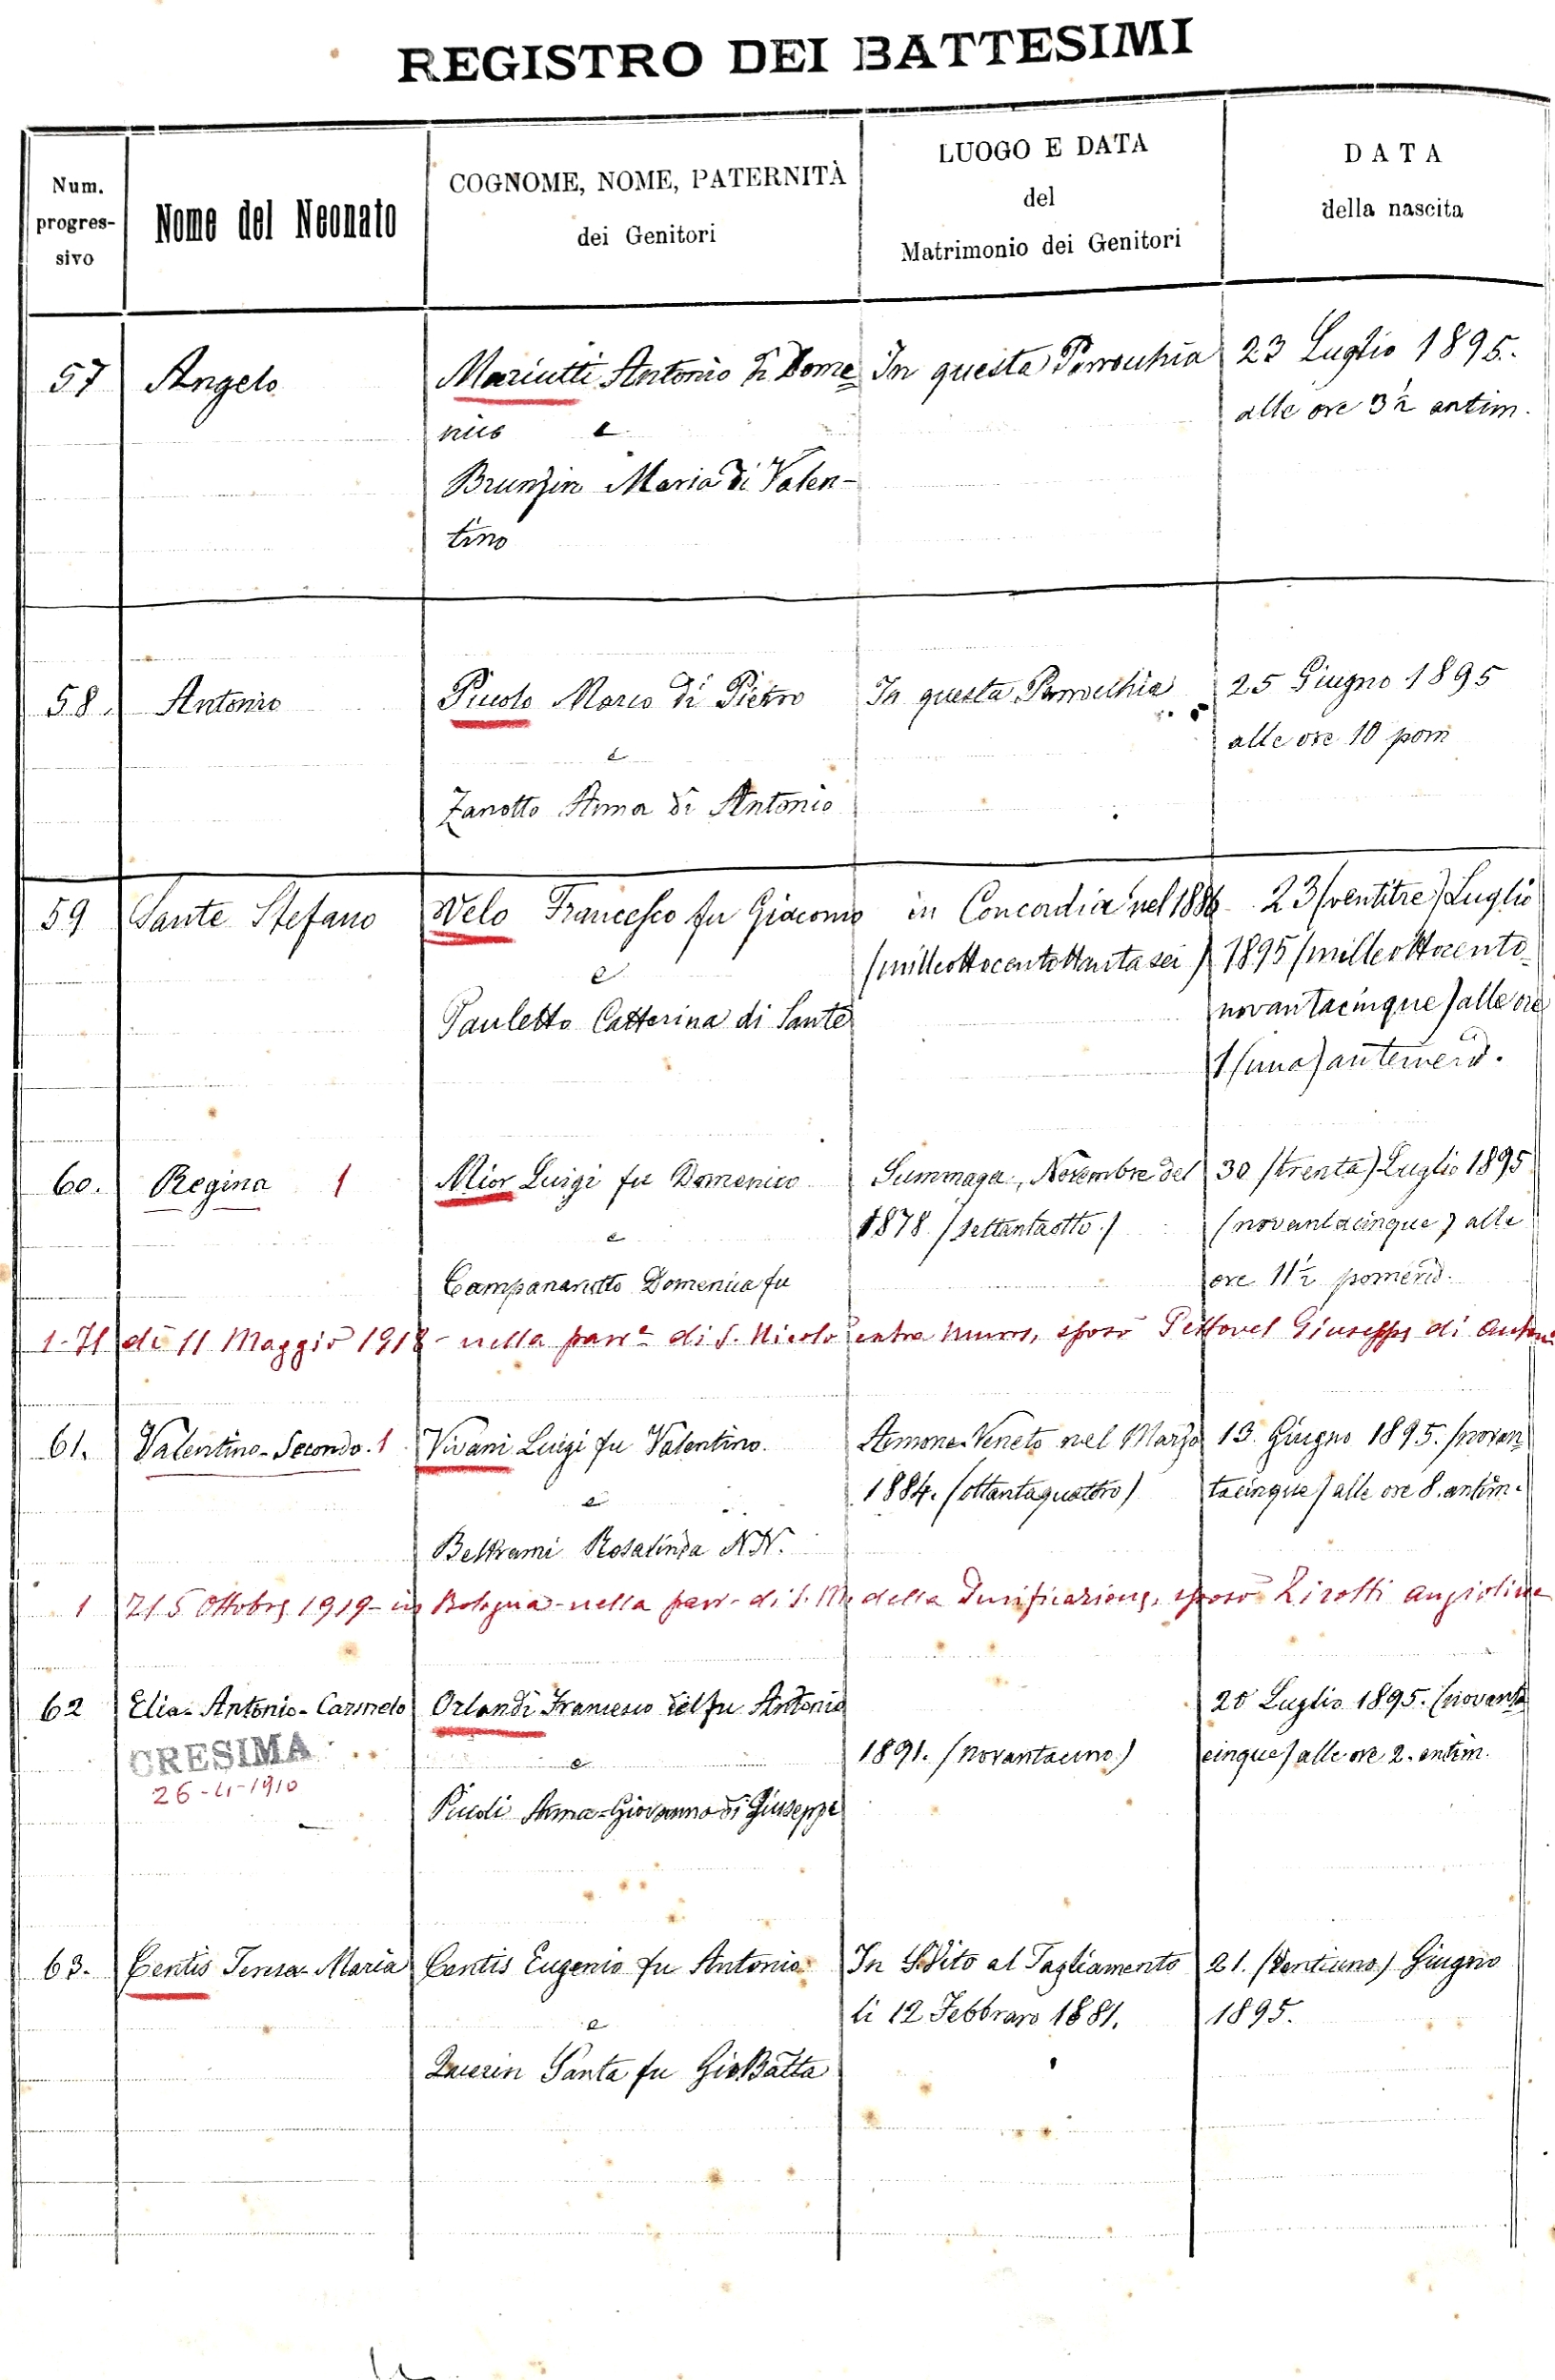 REGISTRO DEI BATTESIMI
Num. progres- sivo
Nome del Neonato
COGNOME, NOME, PATERNITÀ dei Genitori
LUOGO E DATA del Matrimonio dei Genitori
DATA della nascita
57 Angelo Mariutti Antonio di Dome= In questa Parrochia 23 Luglio 1895.
nico e alle ore 3½ antim.
Brunzin Maria di Valen-
tino
58. Antonio Piccolo Marco di Pietro In questa Parrocchia 25 Giugno 1895
e alle ore 10 pom
Zanotto Anna di Antonio
59 Sante Stefano Velo Francesco fu Giacomo in Concordia nel 1886 23 (ventitre) Luglio
e (milleottocentottanta sei) 1895 (milleottocento-
Pauletto Catterina di Sante novantacinque) alle ore
1 (una) antemerid.
60. Regina 1 Mior Luigi fu Domenico Summaga, Novembre del 30 (trenta) Luglio 1895
e 1878 (settantaotto.) (novantacinque) alle
Campanarutto Domenica fu ore 11½ pomerid.
1 - Il dì 11 Maggio 1918 - nella parr.a di S. Nicolo entro muros, sposò Giuseppe di Antoni
61. Valentino-Secondo. 1 Vivani Luigi fu Valentino. Annone-Veneto nel Marzo 13. Giugno 1895. (novan
e 1884. (ottantaquattro) tacinque) alle ore 8. antim.
Beltrami Rosalinda N.N.
1 Il 5 Ottobre 1919 - in Bologna - nella parr. di S. M. della Purificazione, sposò Lirotti Angiolina
62 Elia-Antonio-Carmelo Orlandi Francesco del fu Antonio 20 Luglio 1895. (novanta
CRESIMA e 1891. (novantauno) cinque) alle ore 2. antim.
26-4-1910
Picoli Anna-Giovanna di Giuseppe
63. Centis Teresa-Maria Centis Eugenio fu Antonio In S. Vito al Tagliamento 21. (ventiuno) Giugno
e li 12 Febbraro 1881. 1895.
Querin Santa fu Gio.Batta